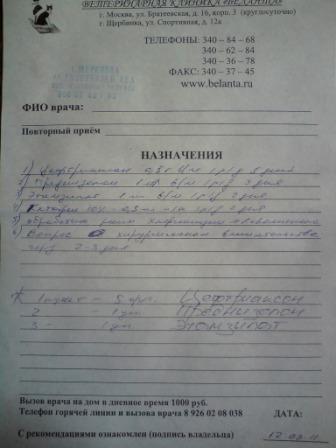 ВЕТЕРИНАРНАЯ КЛИНИКА "БЕЛАНТА"
г. Москва, ул. Братеевская, д. 16, корп. 3 (круглосуточно)
г. Щербинка, ул. Спортивная, д. 12а
ТЕЛЕФОНЫ: 340 – 84 – 68
340 – 62 – 84
340 – 36 – 78
ФАКС: 340 – 37 – 45
www.belanta.ru
ФИО врача:
Повторный приём
НАЗНАЧЕНИЯ
1) Цефтриаксон 0,5 в/м 1 р/д 5 дней
2) Преднизолон 1 в/м 1 р/д 3 дня
3) Этамзилат 1 мл в/м 1 р/д 3 дня
4) 10% - 0,5 1 р/д 2 дня
5) обработка
6) Вопрос о хирургическом вмешательстве
через 2-3 дня
1 - 5 Цефтриаксон
2 - 1 Преднизолон
3 - 1 Этамзилат
Вызов врача на дом в дневное время 1000 руб.
Телефон горячей линии и вызова врача 8 926 02 08 038
ДАТА:
С рекомендациями ознакомлен (подпись владельца)